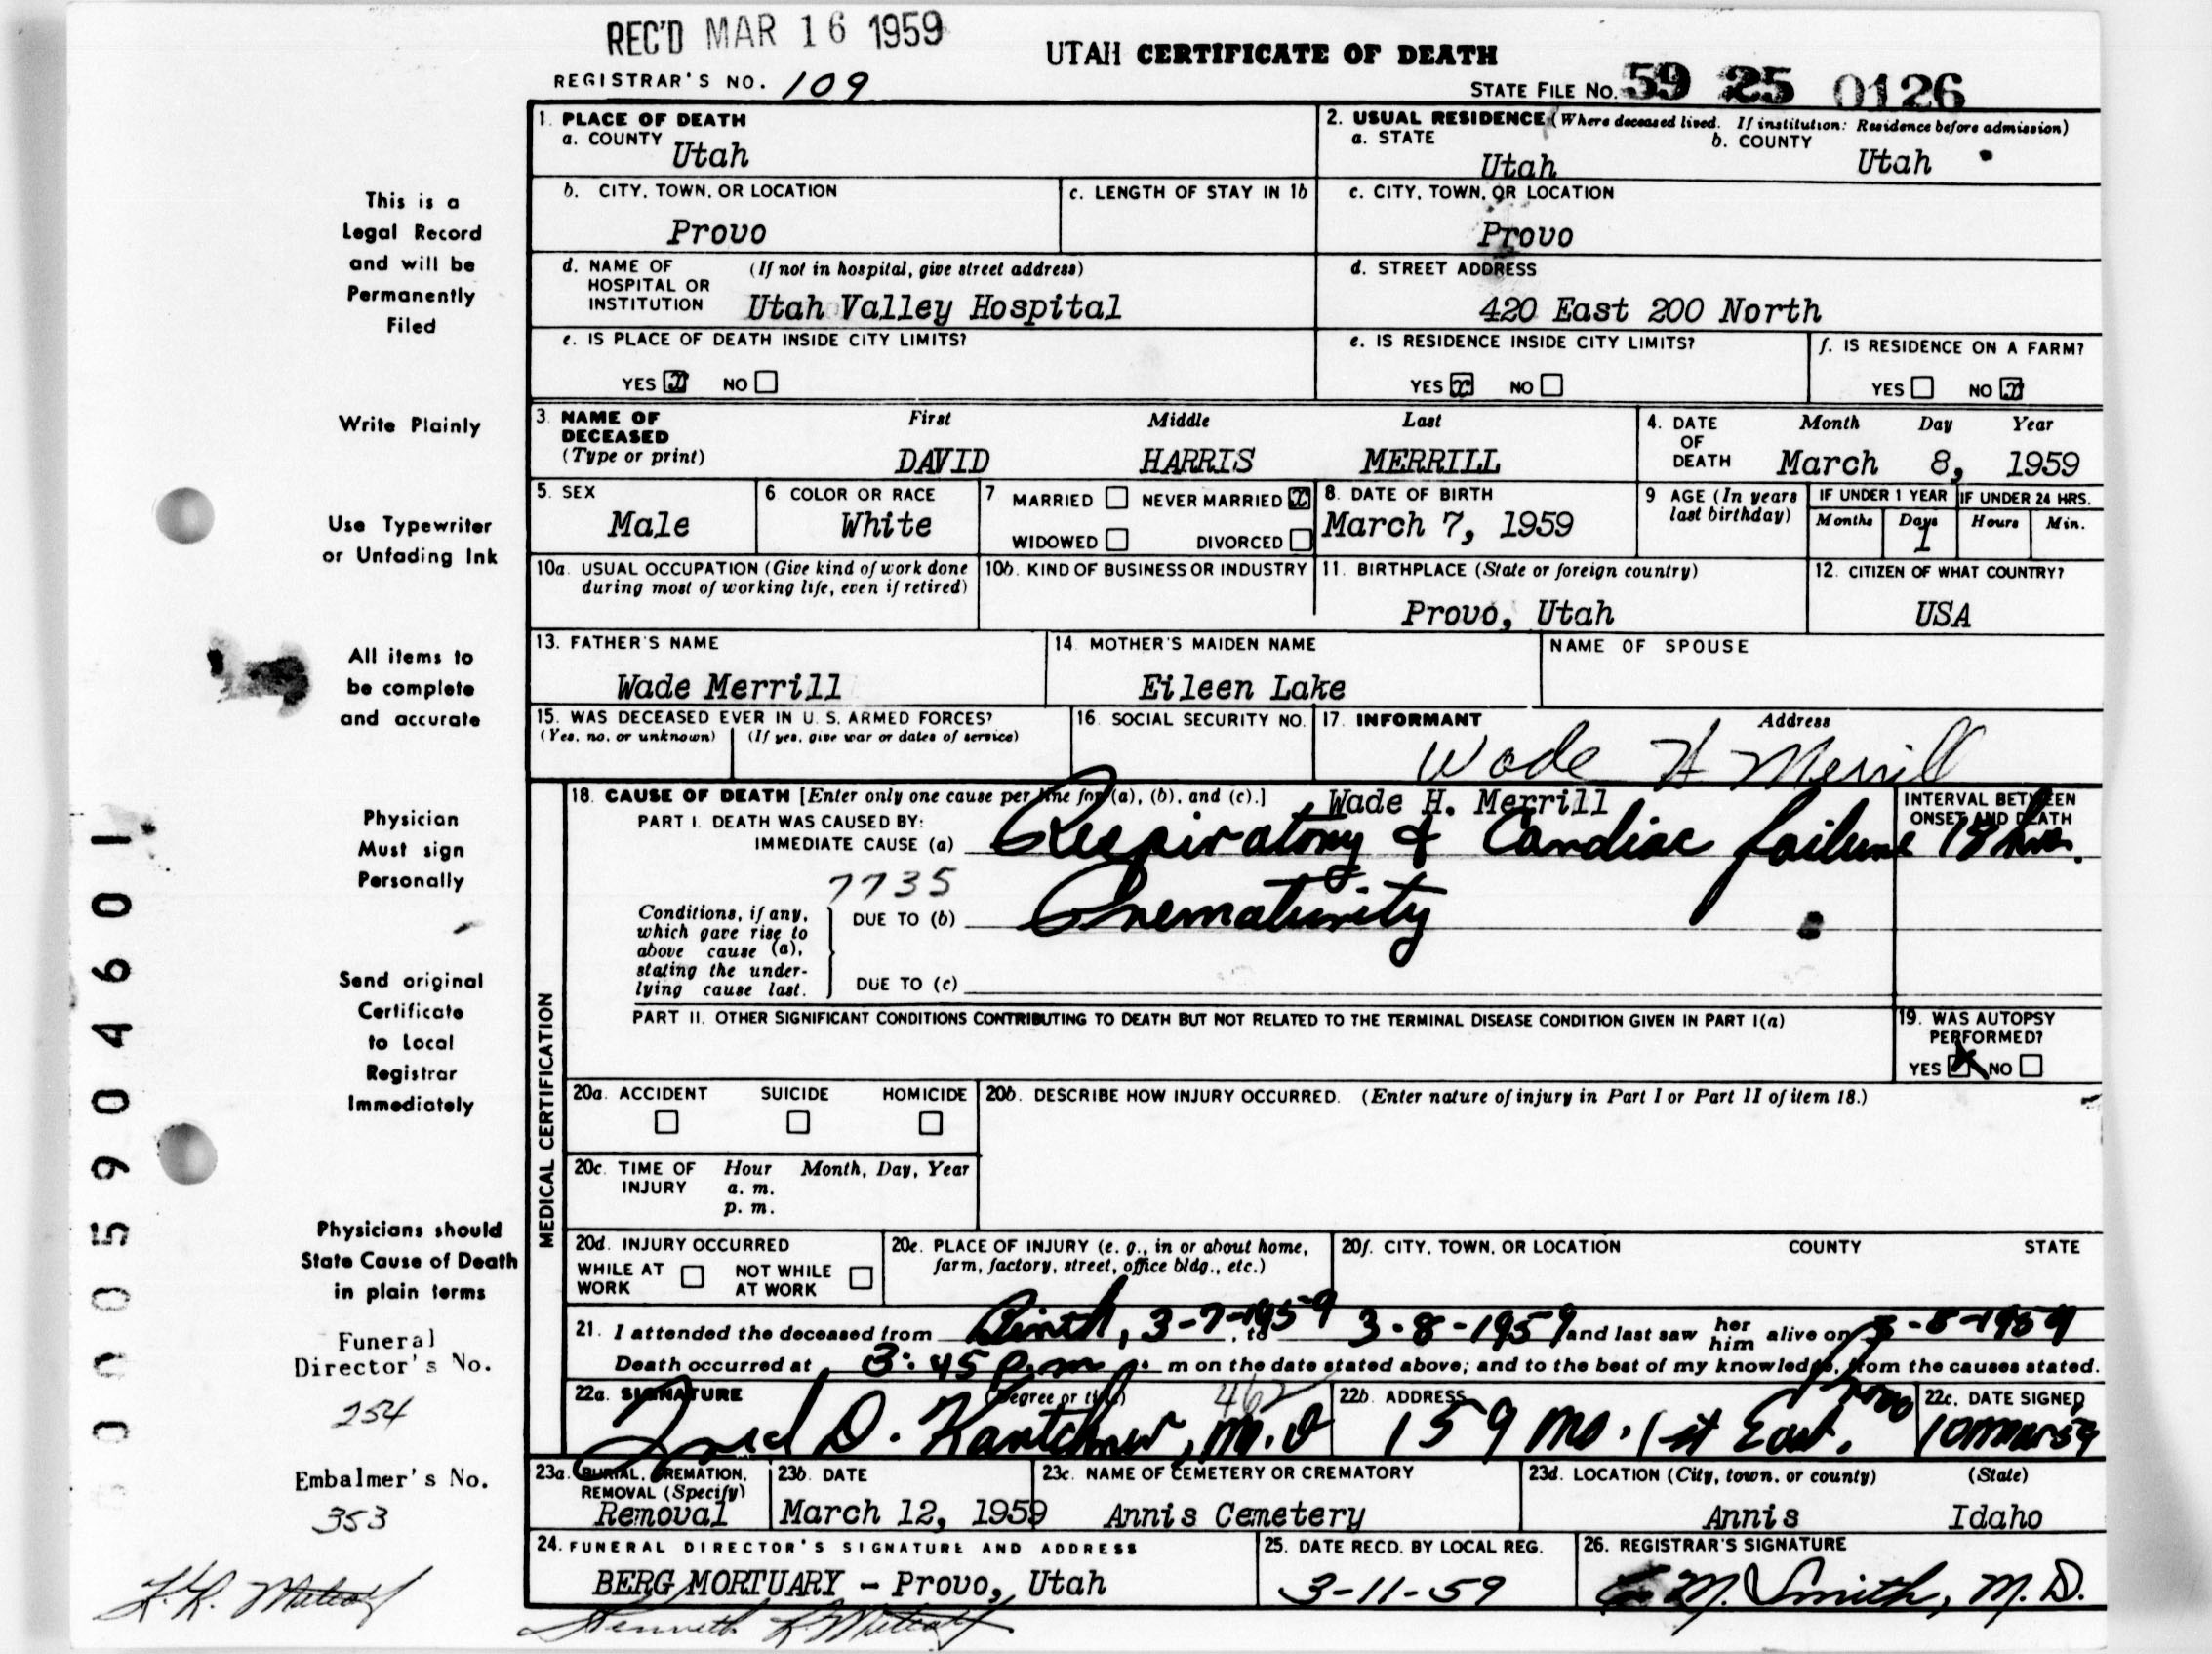 REC'D MAR 16 1959
UTAH CERTIFICATE OF DEATH
REGISTRAR'S NO. 109
STATE FILE NO. 59 25 0126
1. PLACE OF DEATH
a. COUNTY Utah
2. USUAL RESIDENCE (Where deceased lived. If institution: Residence before admission)
a. STATE Utah b. COUNTY Utah
b. CITY, TOWN, OR LOCATION Provo
c. LENGTH OF STAY IN 1b
c. CITY, TOWN, OR LOCATION Provo
d. NAME OF HOSPITAL OR INSTITUTION (If not in hospital, give street address) Utah Valley Hospital
d. STREET ADDRESS 420 East 200 North
e. IS PLACE OF DEATH INSIDE CITY LIMITS?
YES x NO
e. IS RESIDENCE INSIDE CITY LIMITS?
YES x NO
f. IS RESIDENCE ON A FARM?
YES NO x
3. NAME OF DECEASED (Type or print)
First Middle Last
DAVID HARRIS MERRILL
4. DATE OF DEATH
Month Day Year
March 8, 1959
5. SEX Male
6 COLOR OR RACE White
7 MARRIED NEVER MARRIED x
WIDOWED DIVORCED
8. DATE OF BIRTH March 7, 1959
9 AGE (In years last birthday)
IF UNDER 1 YEAR
Months Days 1
IF UNDER 24 HRS.
Hours Min.
10a. USUAL OCCUPATION (Give kind of work done during most of working life, even if retired)
10b. KIND OF BUSINESS OR INDUSTRY
11. BIRTHPLACE (State or foreign country) Provo, Utah
12. CITIZEN OF WHAT COUNTRY? USA
13. FATHER'S NAME Wade Merrill
14. MOTHER'S MAIDEN NAME Eileen Lake
NAME OF SPOUSE
15. WAS DECEASED EVER IN U. S. ARMED FORCES?
(Yes, no, or unknown) (If yes, give war or dates of service)
16. SOCIAL SECURITY NO.
17. INFORMANT Address
Wade H Merrill
Wade H. Merrill
18. CAUSE OF DEATH [Enter only one cause per line for (a), (b), and (c).]
INTERVAL BETWEEN ONSET AND DEATH
PART I. DEATH WAS CAUSED BY:
IMMEDIATE CAUSE (a) Respiratory & Cardiac failure 18 hrs.
7735
Conditions, if any, which gave rise to above cause (a), stating the underlying cause last.
DUE TO (b) Prematurity
DUE TO (c)
PART II. OTHER SIGNIFICANT CONDITIONS CONTRIBUTING TO DEATH BUT NOT RELATED TO THE TERMINAL DISEASE CONDITION GIVEN IN PART I(a)
19. WAS AUTOPSY PERFORMED?
YES X NO
MEDICAL CERTIFICATION
20a. ACCIDENT SUICIDE HOMICIDE
20b. DESCRIBE HOW INJURY OCCURRED. (Enter nature of injury in Part I or Part II of item 18.)
20c. TIME OF INJURY Hour Month, Day, Year
a. m.
p. m.
20d. INJURY OCCURRED
WHILE AT WORK NOT WHILE AT WORK
20e. PLACE OF INJURY (e. g., in or about home, farm, factory, street, office bldg., etc.)
20f. CITY, TOWN, OR LOCATION COUNTY STATE
21. I attended the deceased from Birth, 3-7-1959, to 3-8-1959 and last saw her him alive on 3-8-1959
Death occurred at 3:45 p.m. m on the date stated above; and to the best of my knowledge, from the causes stated.
22a. SIGNATURE (Degree or title) 462
D. M.D
22b. ADDRESS 159 No. 1st East. Provo
22c. DATE SIGNED 10 Mar 59
23a. BURIAL, CREMATION, REMOVAL (Specify) Removal
23b. DATE March 12, 1959
23c. NAME OF CEMETERY OR CREMATORY Annis Cemetery
23d. LOCATION (City, town, or county) (State)
Annis Idaho
24. FUNERAL DIRECTOR'S SIGNATURE AND ADDRESS
BERG MORTUARY - Provo, Utah
Kenneth R Metcalf
25. DATE RECD. BY LOCAL REG. 3-11-59
26. REGISTRAR'S SIGNATURE
M. Smith, M. D.
This is a
Legal Record
and will be
Permanently
Filed
Write Plainly
Use Typewriter
or Unfading Ink
All items to
be complete
and accurate
Physician
Must sign
Personally
Send original
Certificate
to Local
Registrar
Immediately
Physicians should
State Cause of Death
in plain terms
Funeral
Director's No.
254
Embalmer's No.
353
K.R. Metcalf
0005904601